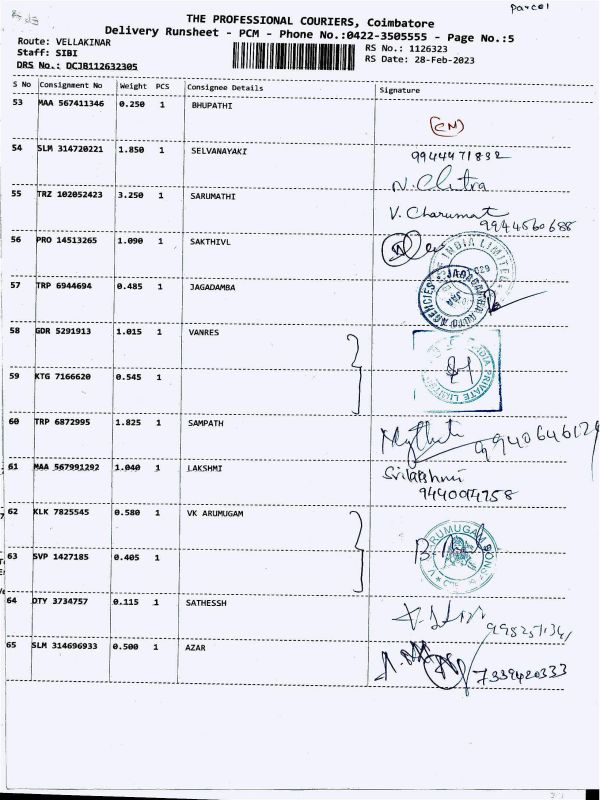 Parcel
THE PROFESSIONAL COURIERS, Coimbatore
Delivery Runsheet - PCM - Phone No.:0422-3505555 - Page No.:5
Route: VELLAKINAR
Staff: SIBI
DRS No.: DCJB112632305
RS No.: 1126323
RS Date: 28-Feb-2023
S No Consignment No Weight PCS Consignee Details Signature
53 MAA 567411346 0.250 1 BHUPATHI
54 SLM 314720221 1.850 1 SELVANAYAKI 9944471832
N. Chitra
55 TRZ 102052423 3.250 1 SARUMATHI V. Charumat
9944560688
56 PRO 14513265 1.090 1 SAKTHIVL
INDIA LIMITED
57 TRP 6944694 0.485 1 JAGADAMBA
JAGADAMBA AUTO AGENCIES
58 GDR 5291913 1.015 1 VANRES
INDIA PRIVATE LIMITED
59 KTG 7166620 0.545 1
60 TRP 6872995 1.825 1 SAMPATH
61 MAA 567991292 1.040 1 LAKSHMI Srilakshmi
9440014758
62 KLK 7825545 0.580 1 VK ARUMUGAM
ARUMUGAM SONS
63 SVP 1427185 0.405 1
64 OTY 3734757 0.115 1 SATHESSH
65 SLM 314696933 0.500 1 AZAR
7339420333